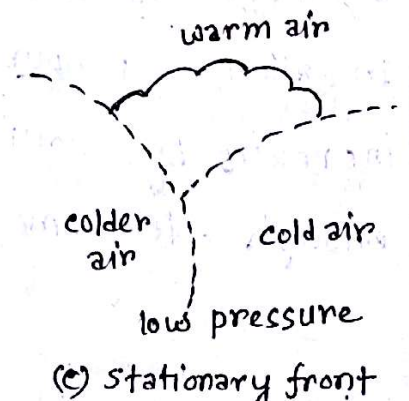 warm air
colder
air
cold air
low pressure
(c) stationary front